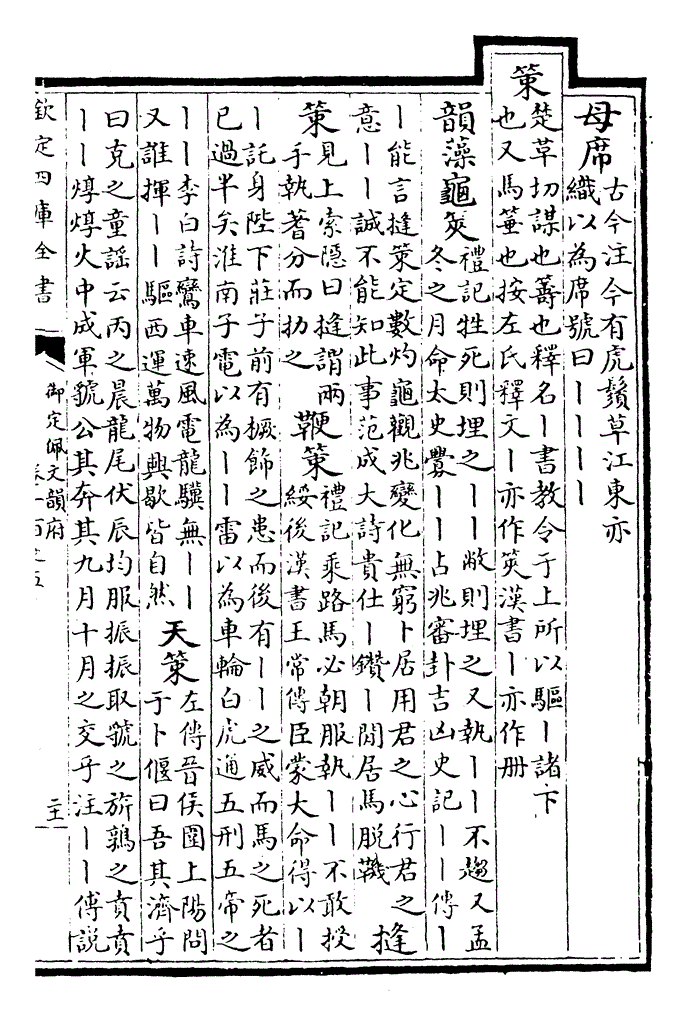 母席
古今注今有虎鬚草江東亦
織以為席號曰丨丨丨丨
策
楚草切謀也籌也釋名丨書教令于上所以驅丨諸下
也又馬箠也按左氏釋文丨亦作筴漢書丨亦作册
韻藻龜筴
禮記牲死則埋之丨丨敝則埋之又執丨丨不趨又孟
冬之月命太史釁丨丨占兆審卦吉凶史記丨丨傳丨
丨能言揲策定數灼龜觀兆變化無窮卜居用君之心行君之
意丨丨誠不能知此事范成大詩貴仕丨鑽丨閒居馬脱鞿
揲
策
見上索隱曰揲謂兩
手執蓍分而扐之
鞭策
禮記乘路馬必朝服執丨丨不敢授
綏後漢書王常傳臣蒙大命得以丨
丨託身陛下莊子前有橛飾之患而後有丨丨之威而馬之死者
已過半矣淮南子電以為丨丨雷以為車輪白虎通五刑五帝之
丨丨李白詩鸞車速風電龍驥無丨丨
又誰揮丨丨驅西運萬物興歇皆自然
天策
左傳晉侯圍上陽問
于卜偃曰吾其濟乎
曰克之童謡云丙之晨龍尾伏辰均服振振取虢之旂鶉之賁賁
丨丨焞焞火中成軍虢公其奔其九月十月之交乎注丨丨傅説
欽定四庫全書
御定佩文韻府
卷一百之五
二十